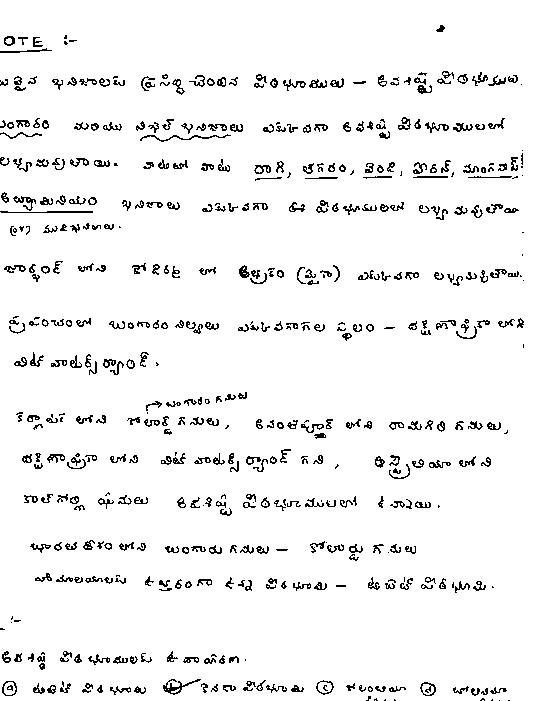 OTE :-
ఖనిజాలకు ప్రసిద్ధి చెందిన పీఠభూములు – అవశిష్ట పీఠభూములు.
బంగారం మరియు నిఖిల్ ఖనిజాలు ఎక్కువగా అవశిష్ట పీఠభూములలో
లభ్యమవుతాయి. వాటితో పాటు రాగి, తగరం, వెండి, మాంగనీస్
అల్యూమినియం ఖనిజాలు ఎక్కువగా ఈ పీఠభూములలో లభ్యమవుతాయి
(లేదా)
జార్ఖండ్ లోని కోడెర్మా లో అభ్రకం (మైకా) ఎక్కువగా లభ్యమవుతాయి.
ప్రపంచంలో బంగారం నిల్వలు ఎక్కువగాగల స్థలం – దక్షిణాఫ్రికా లోని
విట్ వాటర్స్ ర్యాండ్.
→ బంగారం గనులు
కర్ణాటక లోని కోలార్డ్ గనులు, అనంతపూర్ లోని రామగిరి గనులు,
దక్షిణాఫ్రికా లోని విట్ వాటర్స్ ర్యాండ్ గని, ఆస్ట్రేలియా లోని
కాల్గూర్లి గనులు అవశిష్ట పీఠభూములలో కలవు.
భారతదేశం లోని బంగారు గనులు – కోలార్డు గనులు
హిమాలయాలకు ఉత్తరంగా ఉన్న పీఠభూమి – టిబెట్ పీఠభూమి.
:-
అవశిష్ట పీఠభూములకు ఉదాహరణ.
(a) టిబెట్ పీఠభూమి (b) కెనడా పీఠభూమి (c) కొలంబియా (d) బొలీవియా